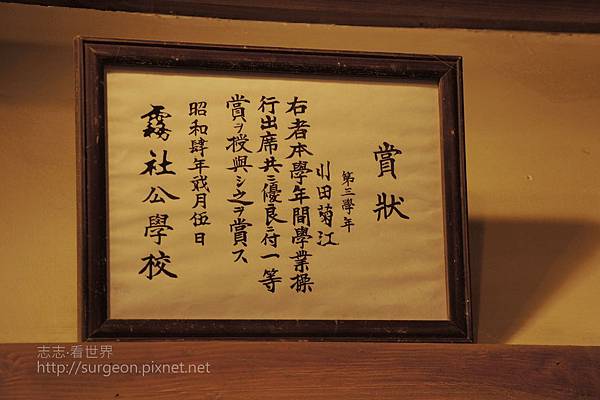 賞狀
第三學年
川田菊江
右者本學年間學業操
行出席共ニ優良ニ付一等
賞ヲ授與シ之ヲ賞ス
昭和肆年月伍日
霧社公學校
志志‧看世界
http://surgeon.pixnet.net